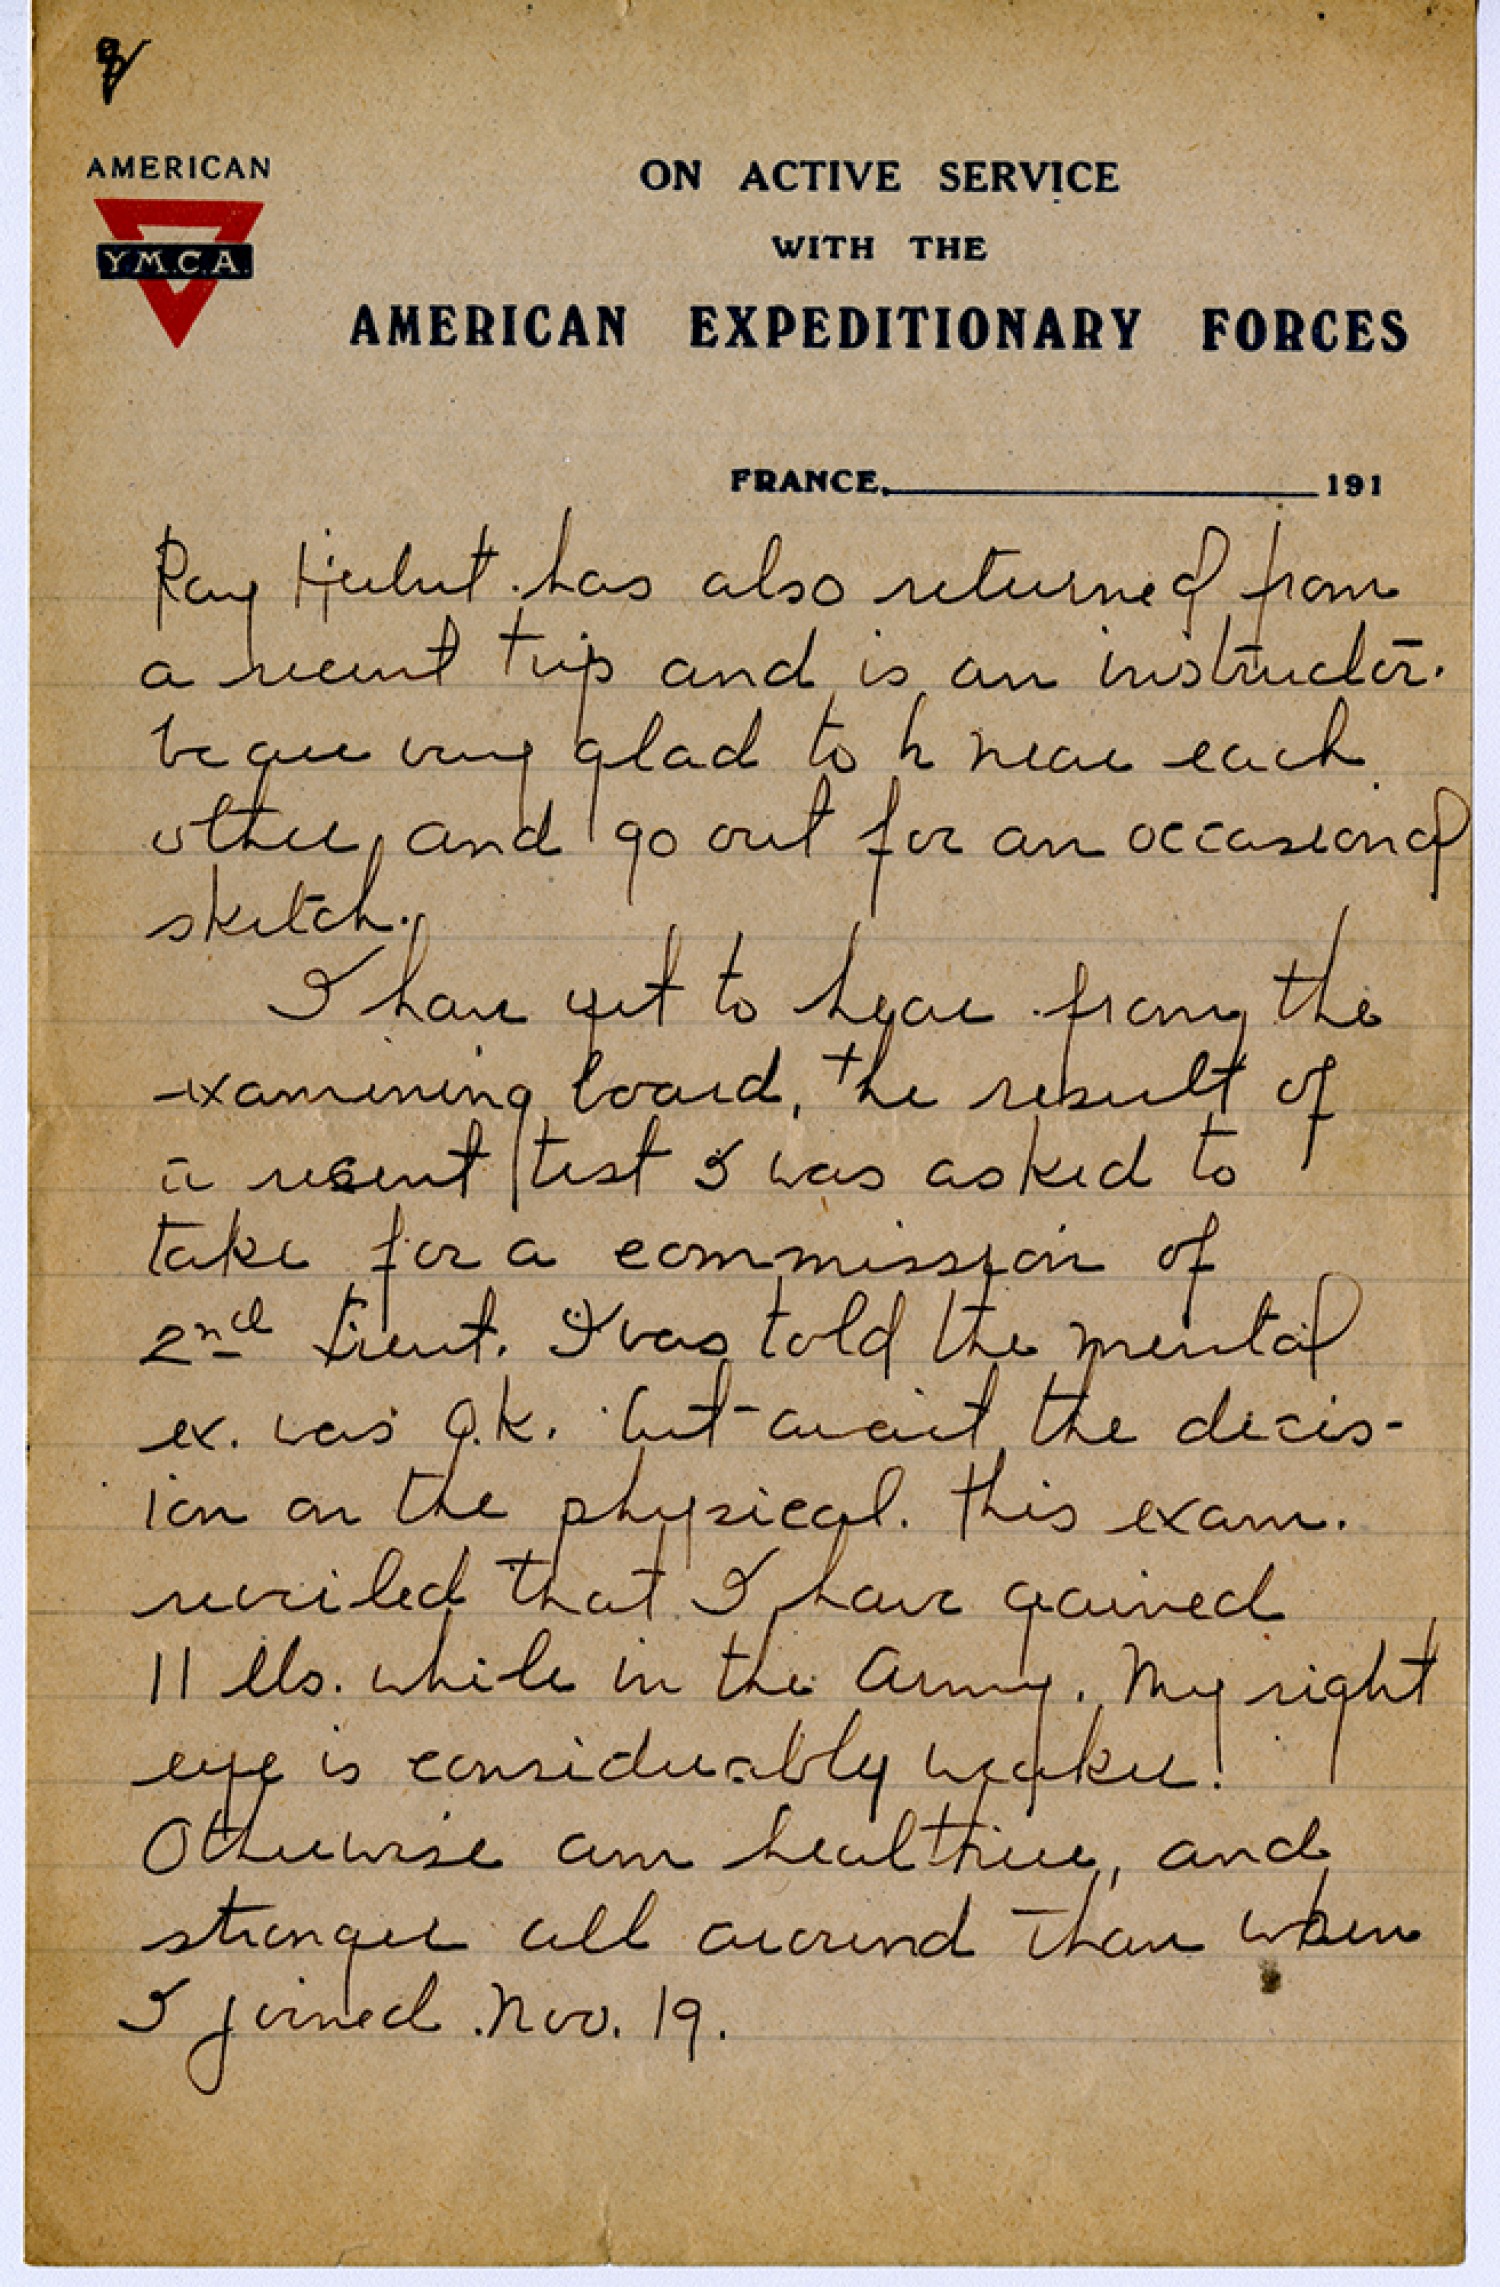 AMERICAN
Y.M.C.A.
ON ACTIVE SERVICE
WITH THE
AMERICAN EXPEDITIONARY FORCES
FRANCE, 191
Ray has also returned from
a recent trip and is an instructor.
We are very glad to be near each
other, and go out for an occasional
sketch.
I have yet to hear from the
examining board, the result of
a recent test I was asked to
take for a commission of
2nd Lieut. I was told the mental
ex. was O.K. but await the decis-
ion on the physical. This exam.
reveiled that I have gained
11 lbs. while in the Army. My right
eye is considerably weaker.
Otherwise am healthier, and
stronger all around than when
I joined Nov. 19.